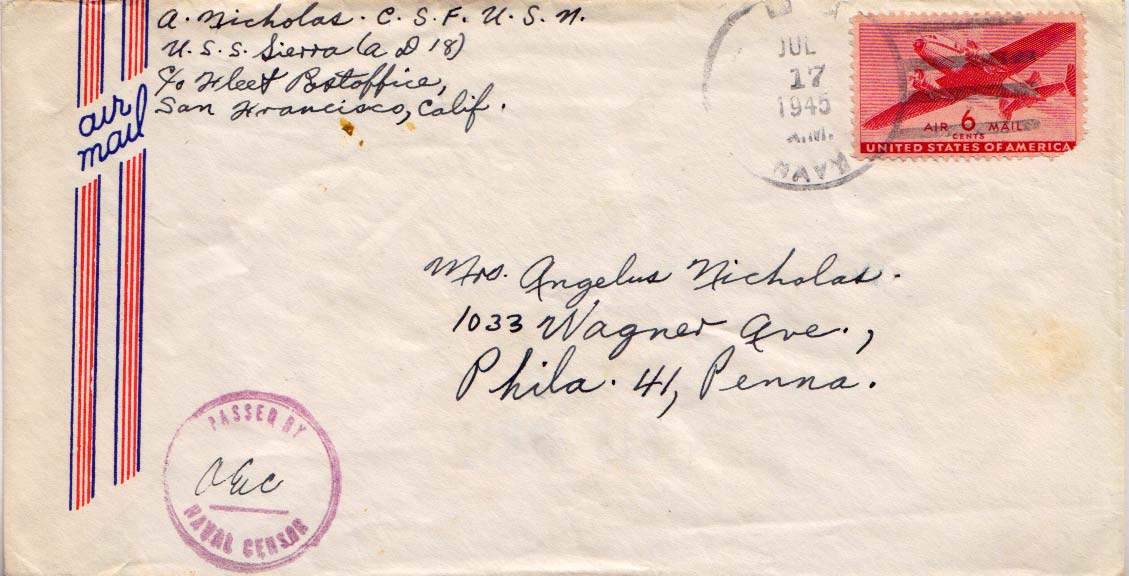 A. Nicholas. C. S. F. U. S. N.
U. S. S. Sierra (A D 18)
c/o Fleet Postoffice,
San Francisco, Calif.
air
mail
JUL
17
1945
A.M.
NAVY
AIR 6 MAIL
CENTS
UNITED STATES OF AMERICA
Mrs. Angelus Nicholas.
1033 Wagner Ave.,
Phila. 41, Penna.
PASSED BY
NAVAL CENSOR